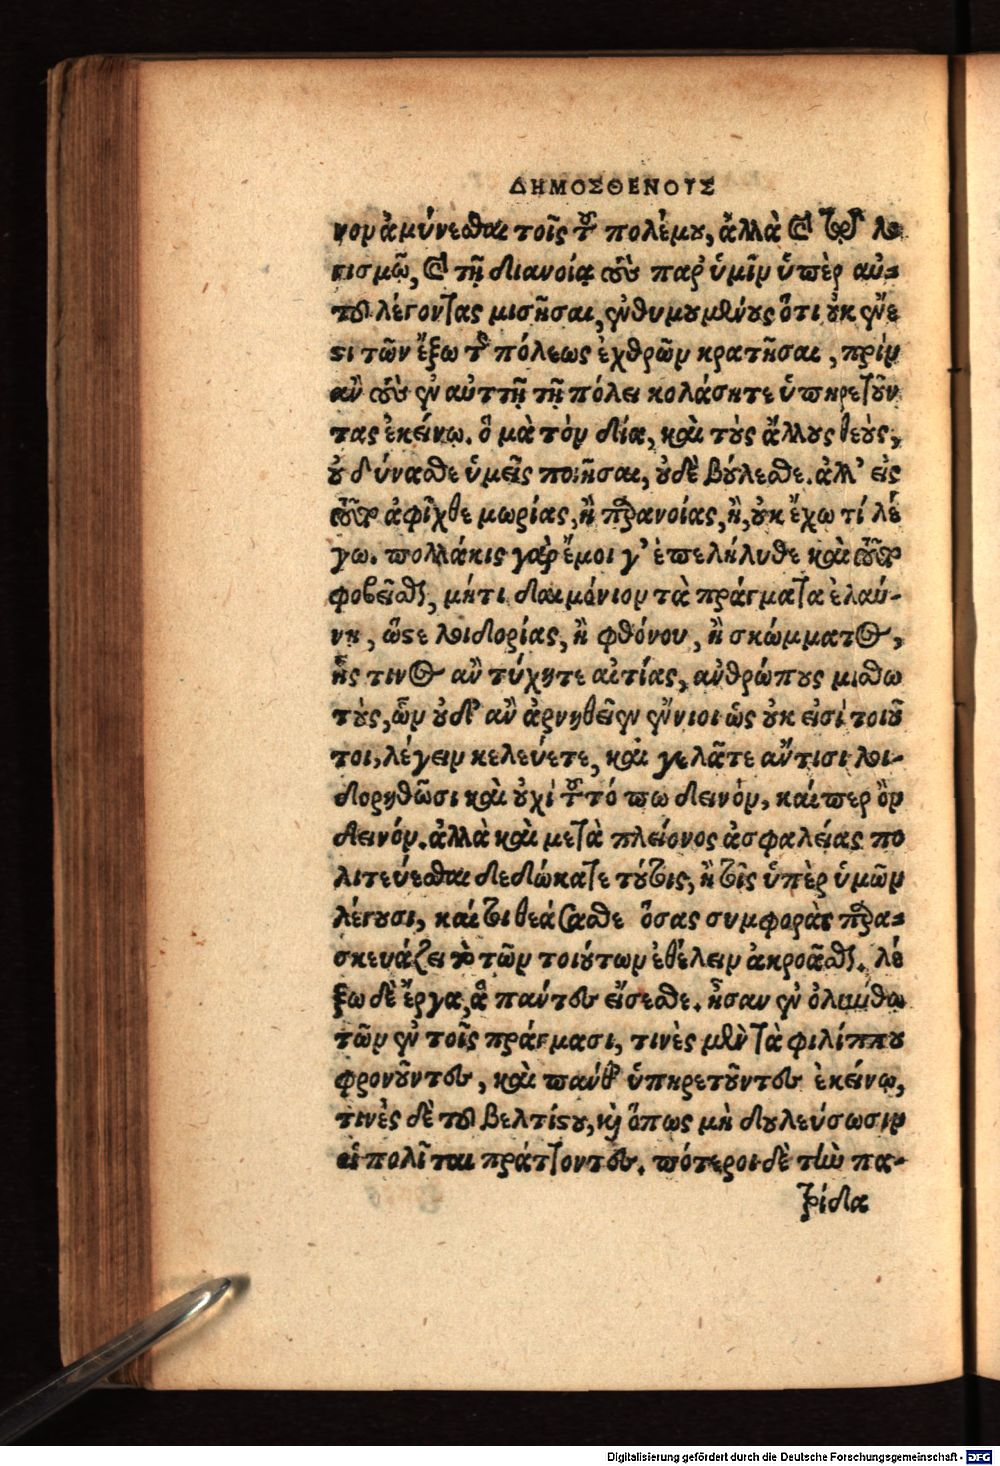 ΔΗΜΟΣΘΕΝΟΥΣ
νον ἀμύνεσθαι τοῖς τοῦ πολέμου, ἀλλὰ καὶ τῷ λο
γισμῷ, καὶ τῇ διανοίᾳ τοὺς παρ' ὑμῖν ὑπὲρ αὐ-
τοῦ λέγοντας μισῆσαι, ἐνθυμουμένους ὅτι οὐκ ἔνε
στι τῶν ἔξω τῆς πόλεως ἐχθρῶν κρατῆσαι, πρὶν
ἂν τοὺς ἐν αὐτῇ τῇ πόλει κολάσητε ὑπηρετοῦν
τας ἐκείνῳ. ὃ μὰ τὸν Δία, καὶ τοὺς ἄλλους θεοὺς,
οὐ δύνασθε ὑμεῖς ποιῆσαι, οὐδὲ βούλεσθε. ἀλλ' εἰς
τοῦτο ἀφῖχθε μωρίας, ἢ παρανοίας, ἢ, οὐκ ἔχω τί λέ
γω. πολλάκις γὰρ ἔμοι γ' ἐπελήλυθε καὶ τοῦτο
φοβεῖσθαι, μήτι δαιμόνιον τὰ πράγματα ἐλαύ-
νῃ, ὥστε λοιδορίας, ἢ φθόνου, ἢ σκώμματος,
ἧς τινος ἂν τύχητε αἰτίας, ἀνθρώπους μισθω
τοὺς, ὧν οὐδ' ἂν ἀρνηθεῖεν ἔνιοι ὡς οὐκ εἰσὶ τοιοῦ
τοι, λέγειν κελεύετε, καὶ γελᾶτε ἄν τισι λοι-
δορηθῶσι καὶ οὐχὶ τοῦτό πω δεινὸν, καίπερ ὂν
δεινόν. ἀλλὰ καὶ μετὰ πλείονος ἀσφαλείας πο
λιτεύεσθαι δεδώκατε τούτοις, ἢ τοῖς ὑπὲρ ὑμῶν
λέγουσι, καίτοι θεάσασθε ὅσας συμφορὰς παρα-
σκευάζει τὸ τῶν τοιούτων ἐθέλειν ἀκροᾶσθαι. λέ
ξω δὲ ἔργα, ἃ πάντες εἴσεσθε. ἦσαν ἐν ὀλύνθῳ
τῶν ἐν τοῖς πράγμασι, τινὲς μὲν τὰ φιλίππου
φρονοῦντες, καὶ πάνθ' ὑπηρετοῦντες ἐκείνῳ,
τινὲς δὲ τοῦ βελτίστου, καὶ ὅπως μὴ δουλεύσωσιν
οἱ πολῖται πράττοντες. πότεροι δὲ τὴν πα-
τρίδα
Digitalisierung gefördert durch die Deutsche Forschungsgemeinschaft - DFG